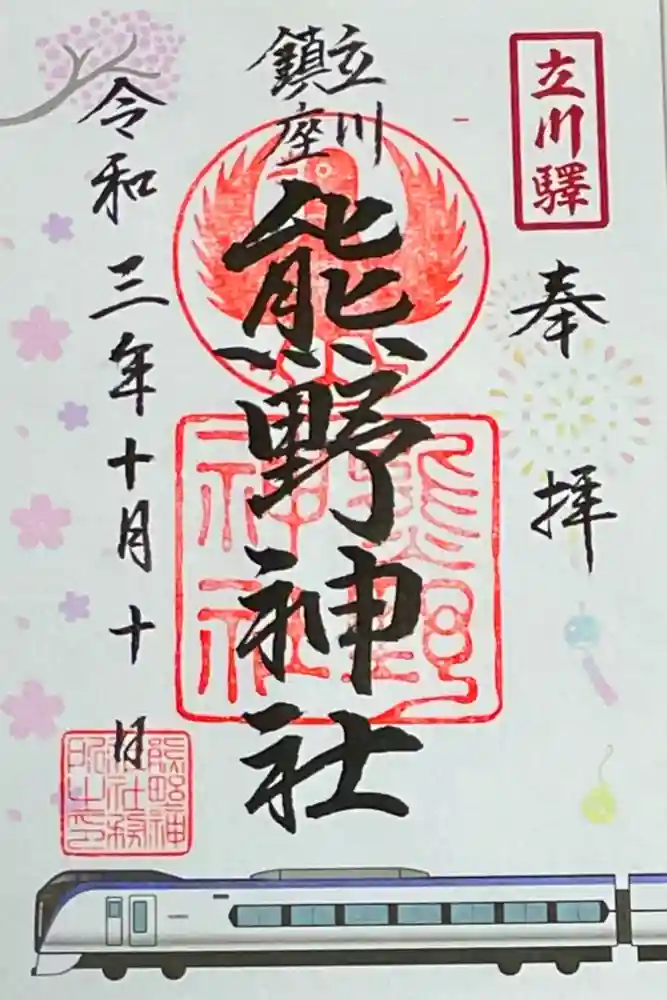 立川驛
奉拝
立川
鎮座
熊野神社
熊野
神社
令和三年十月十日
熊野神
社社務
所之印